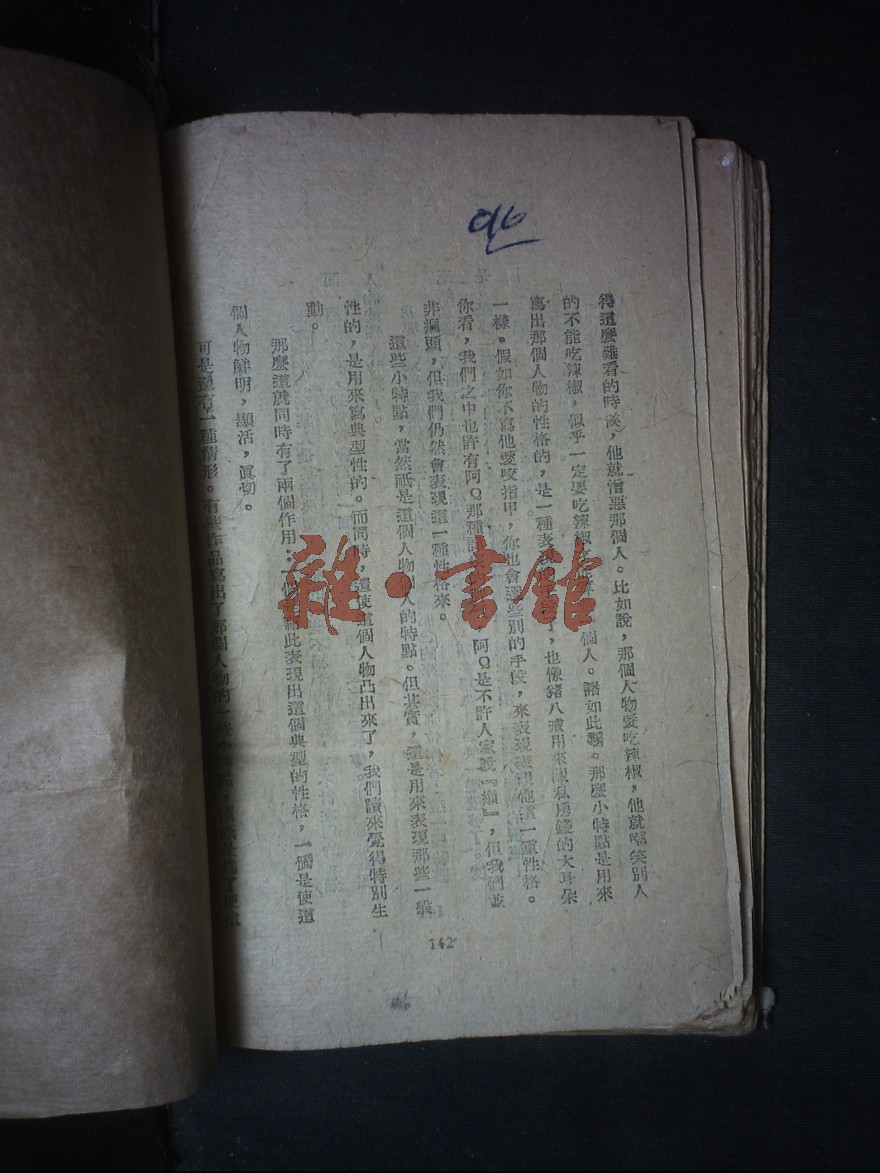 96
得這麼難看的時候,他就憎惡那個人。比如說,那個人物愛吃辣椒,他就嘲笑別人
的不能吃辣椒,似乎一定要吃辣椒 個人。諸如此類。那麼小特點是用來
寫出那個人物的性格的,是一種表 ,也像豬八戒用來藏私房錢的大耳朵
一樣。假如你不寫他愛咬指甲,你也會 些別的手段,來表現 他這一種性格。
你看,我們之中也許有阿Q那種 阿Q是不許人家說『癩』,但我們並
非癩頭,但我們仍然會表現這一種性格來。
這些小特點,當然祇是這個人物個人的特點。但其實,這是用來表現那些一般
性的,是用來寫典型性的。而同時,還使這個人物凸出來了,我們讀來覺得特別生
動。
那麼這就同時有了兩個作用:一個 藉此表現出這個典型的性格,一個是使這
個人物鮮明,顯活,真切。
可是還有一種情形。有些作品寫出了那個人物的一
142
雜·書館